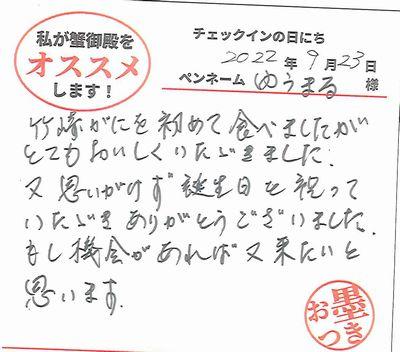 私が蟹御殿を
オススメ
します！
チェックインの日にち
2022年9月23日
ペンネーム ゆうまる 様
竹崎がにを初めて食べましたが
とてもおいしくいただきました.
又思いがけず誕生日を祝って
いただきありがとうございました.
もし機会があれば又来たいと
思います.
お墨つき